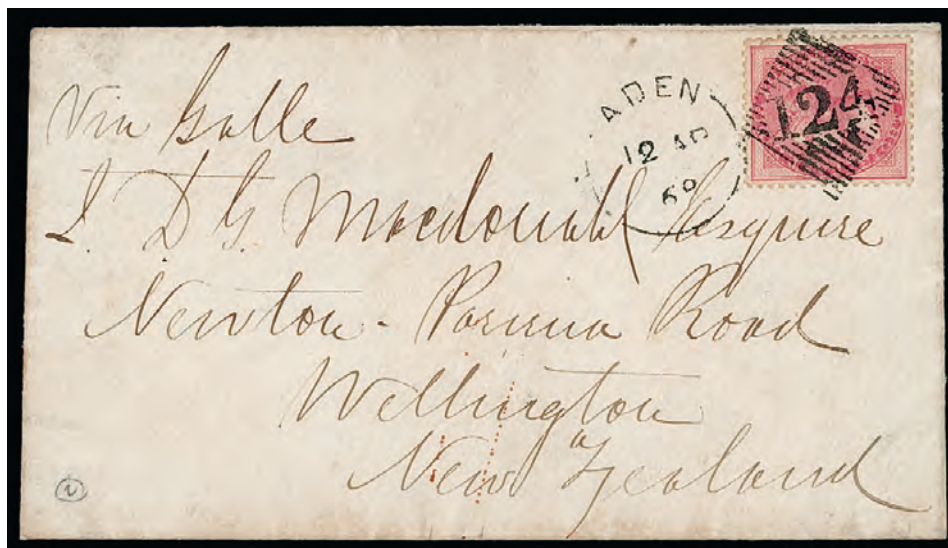 Via Galle
ADEN
12 AP
69
124
I. D. G. Macdonald Esquire
Newton - Porirua Road
Wellington
New Zealand
2